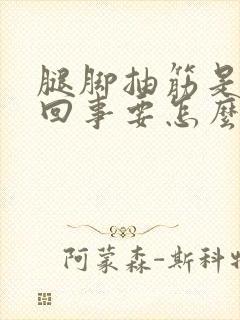 腿脚抽筋是
回事要怎麼
阿蒙森-斯科特